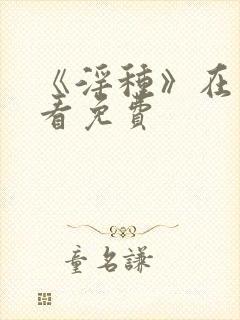 《淫种》在
看免费
童名謙